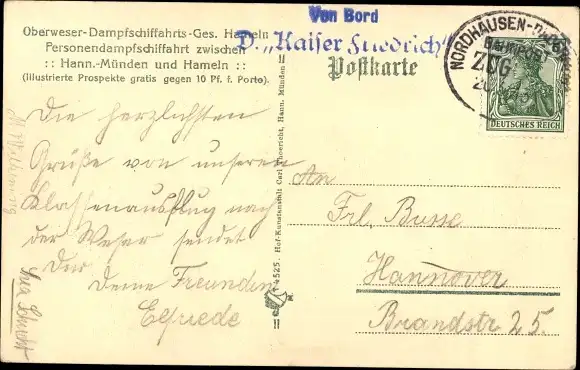 Oberweser-Dampfschiffahrts-Ges. Hameln
Personendampfschiffahrt zwischen
:: Hann.-Münden und Hameln ::
(Illustrierte Prospekte gratis gegen 10 Pf. f. Porto).
Von Bord
D. „Kaiser Friedrich“
Postkarte
NORDHAUSEN-
BAHNPOST
ZUG
DEUTSCHES REICH
Die herzlichsten
Grüße von unserem
Klassenausflug nach
der Weser sendet
Dir
Deine Freundin
Elfriede
An
Frl. Busse
Hannover
Brandstr. 25.
4525. Hof-Kunstanstalt Carl Thoericht, Hann. Münden